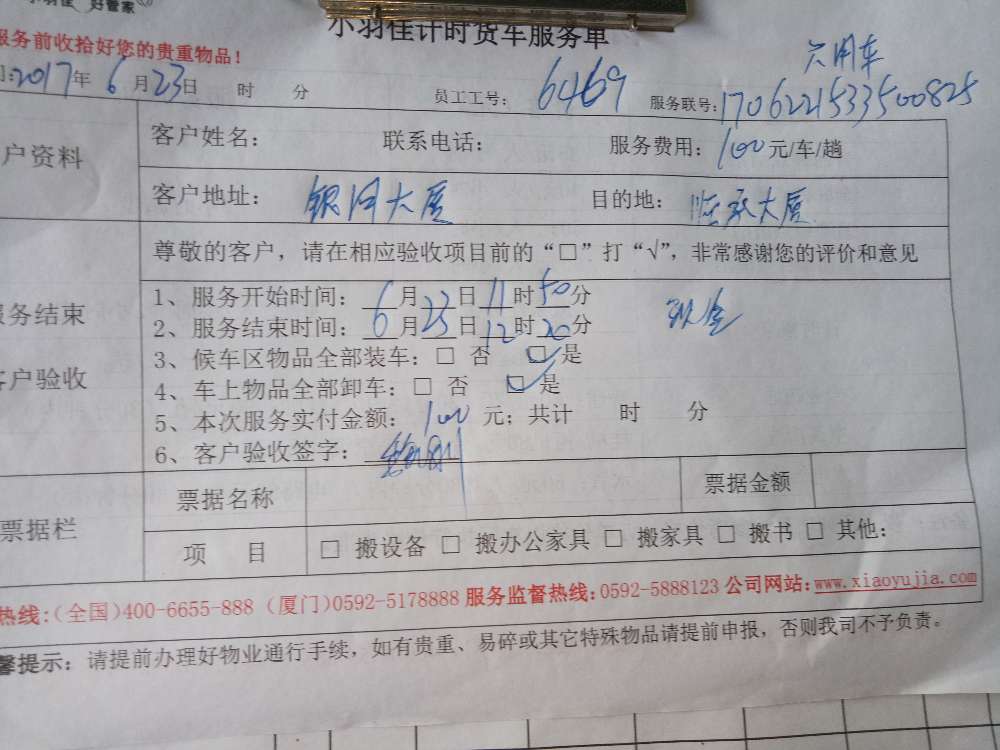 小羽佳 好管家
小羽佳计时货车服务单
服务前收拾好您的贵重物品!
2017年6月23日 时 分 员工工号: 6469 服务联号: 1706221533500825
户资料 客户姓名: 联系电话: 服务费用: 100元/车/趟
客户地址: 银河大厦 目的地: 大厦
尊敬的客户，请在相应验收项目前的“□”打“√”，非常感谢您的评价和意见
服务结束
客户验收
1、服务开始时间: 6月23日11时50分
2、服务结束时间: 6月23日12时20分
现金
3、候车区物品全部装车: □ 否 ☑ 是
4、车上物品全部卸车: □ 否 ☑ 是
5、本次服务实付金额: 100 元; 共计 时 分
6、客户验收签字:
票据栏 票据名称 票据金额
项 目 □ 搬设备 □ 搬办公家具 □ 搬家具 □ 搬书 □ 其他:
热线:(全国)400-6655-888 (厦门)0592-5178888 服务监督热线:0592-5888123 公司网站:www.xiaoyujia.com
馨提示: 请提前办理好物业通行手续，如有贵重、易碎或其它特殊物品请提前申报，否则我司不予负责。